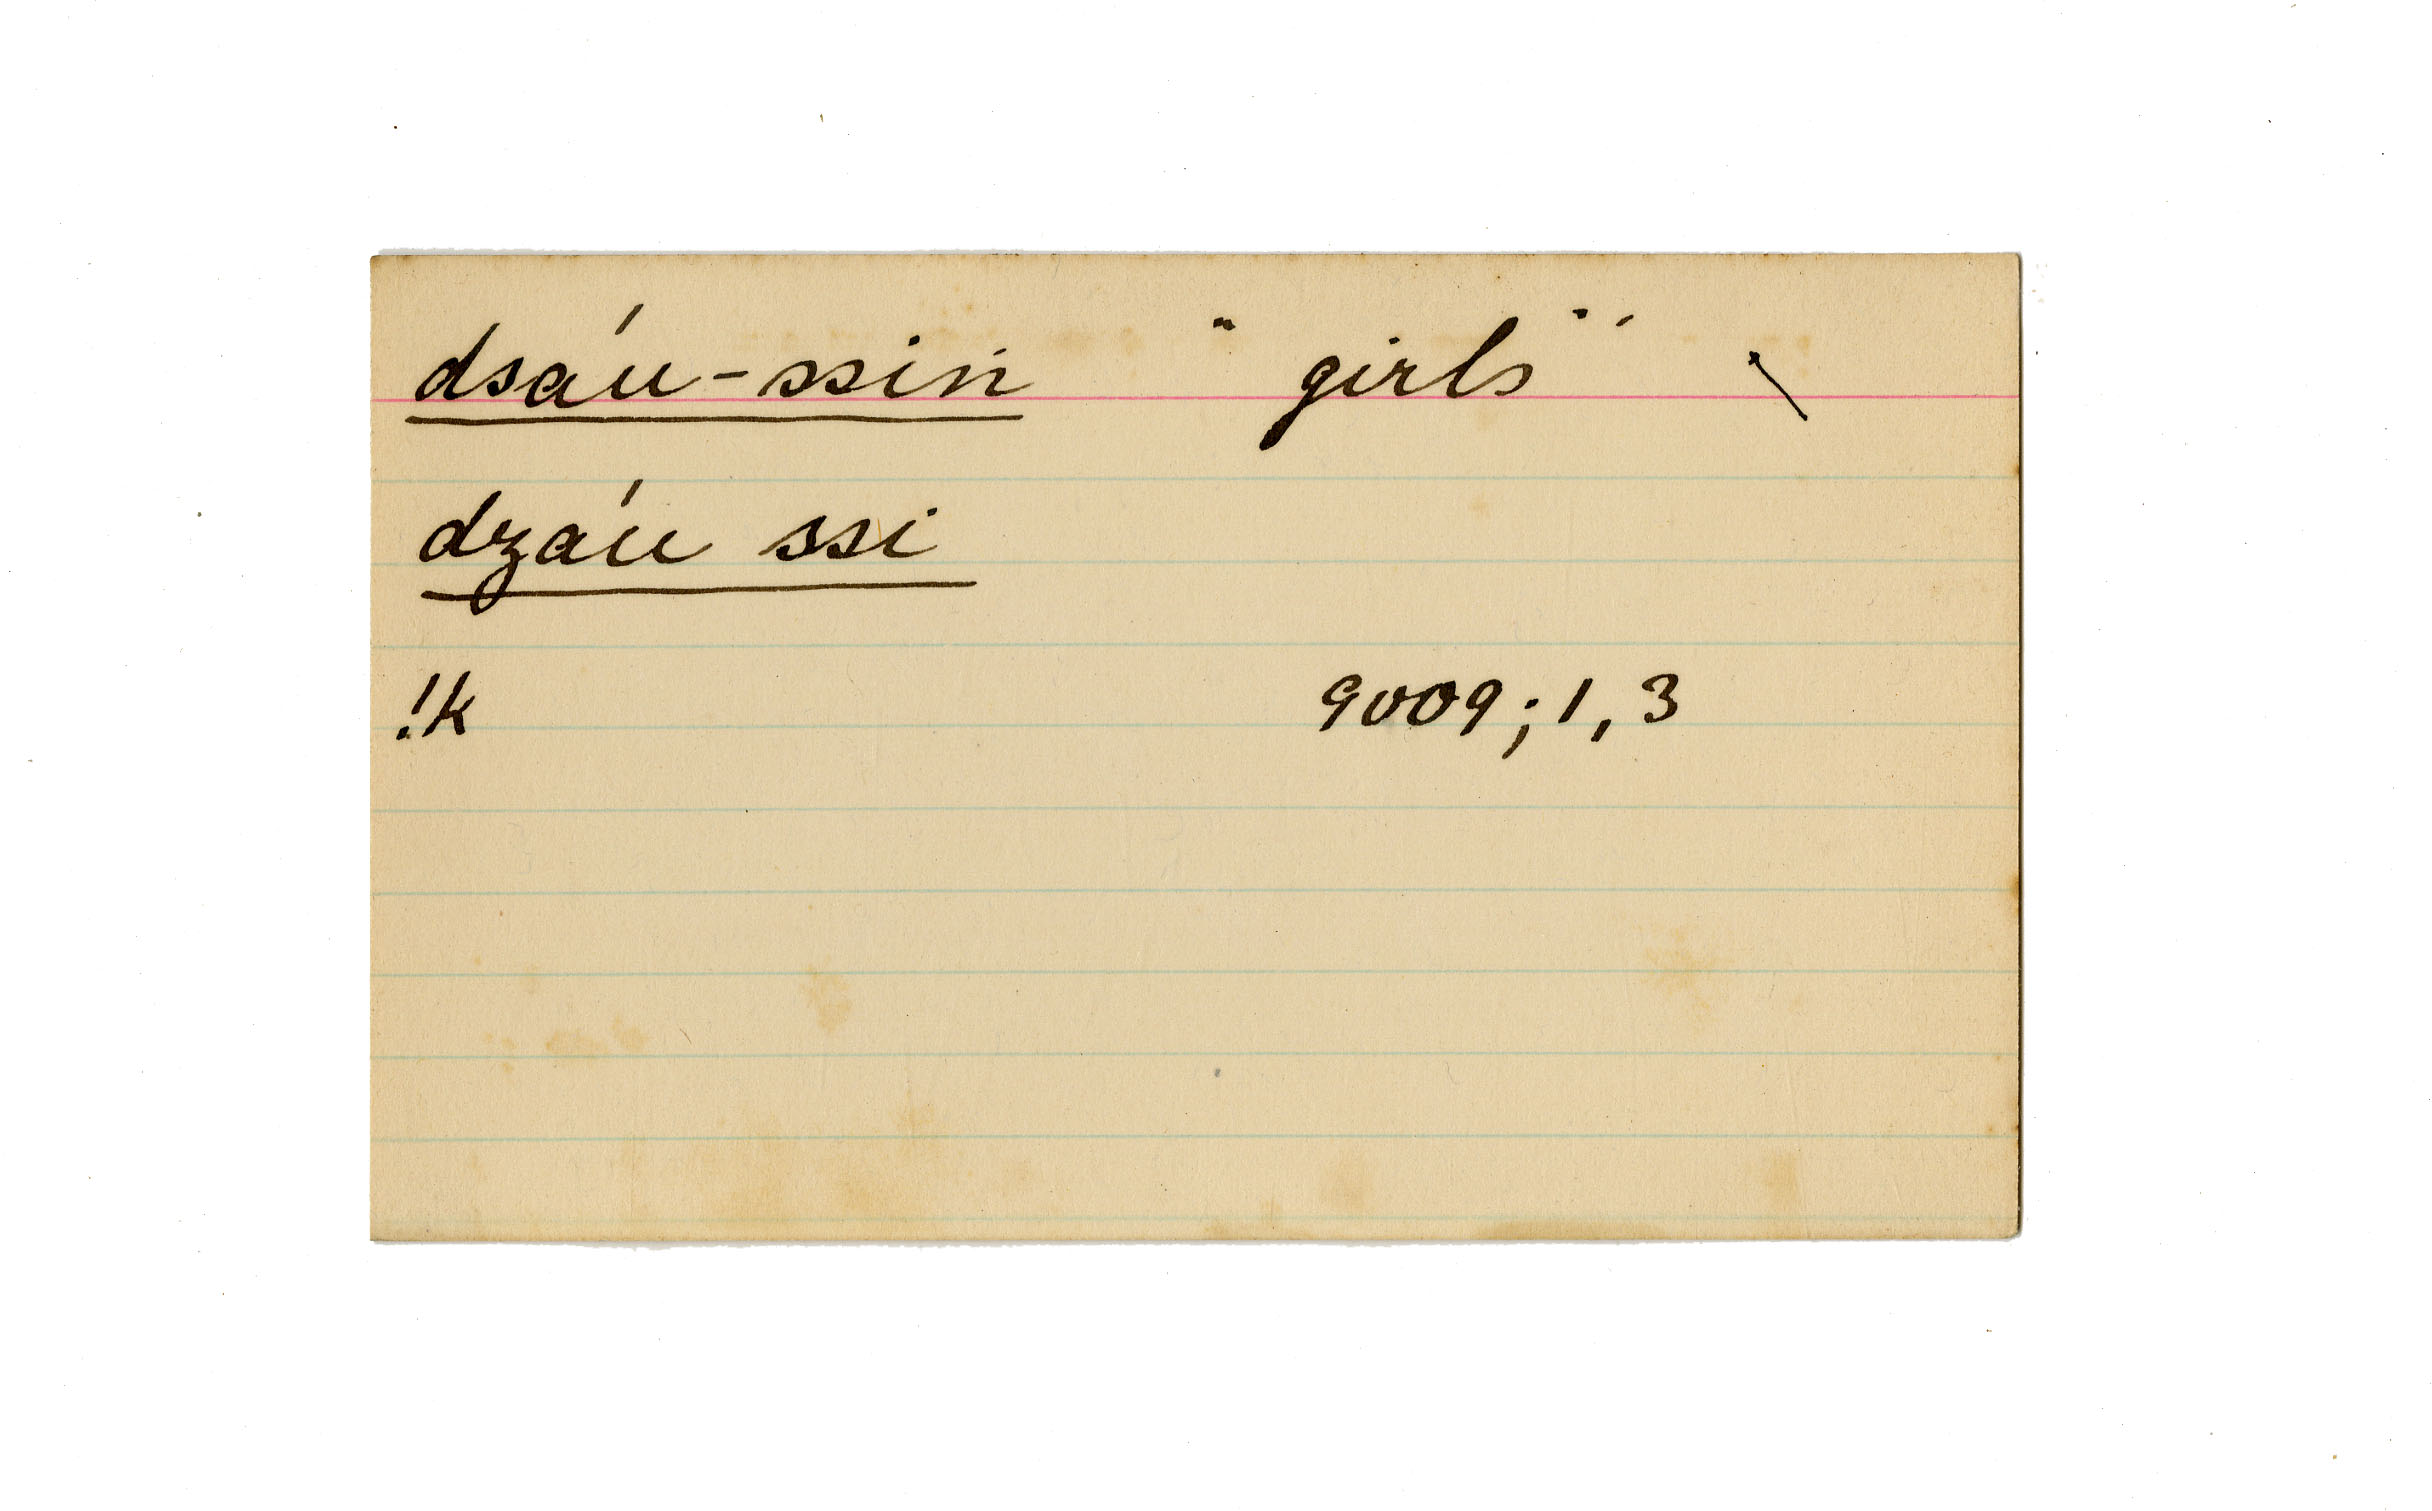 dsáu-ssiṅ " girls" \
dzáu ssi
!k 9009; 1, 3